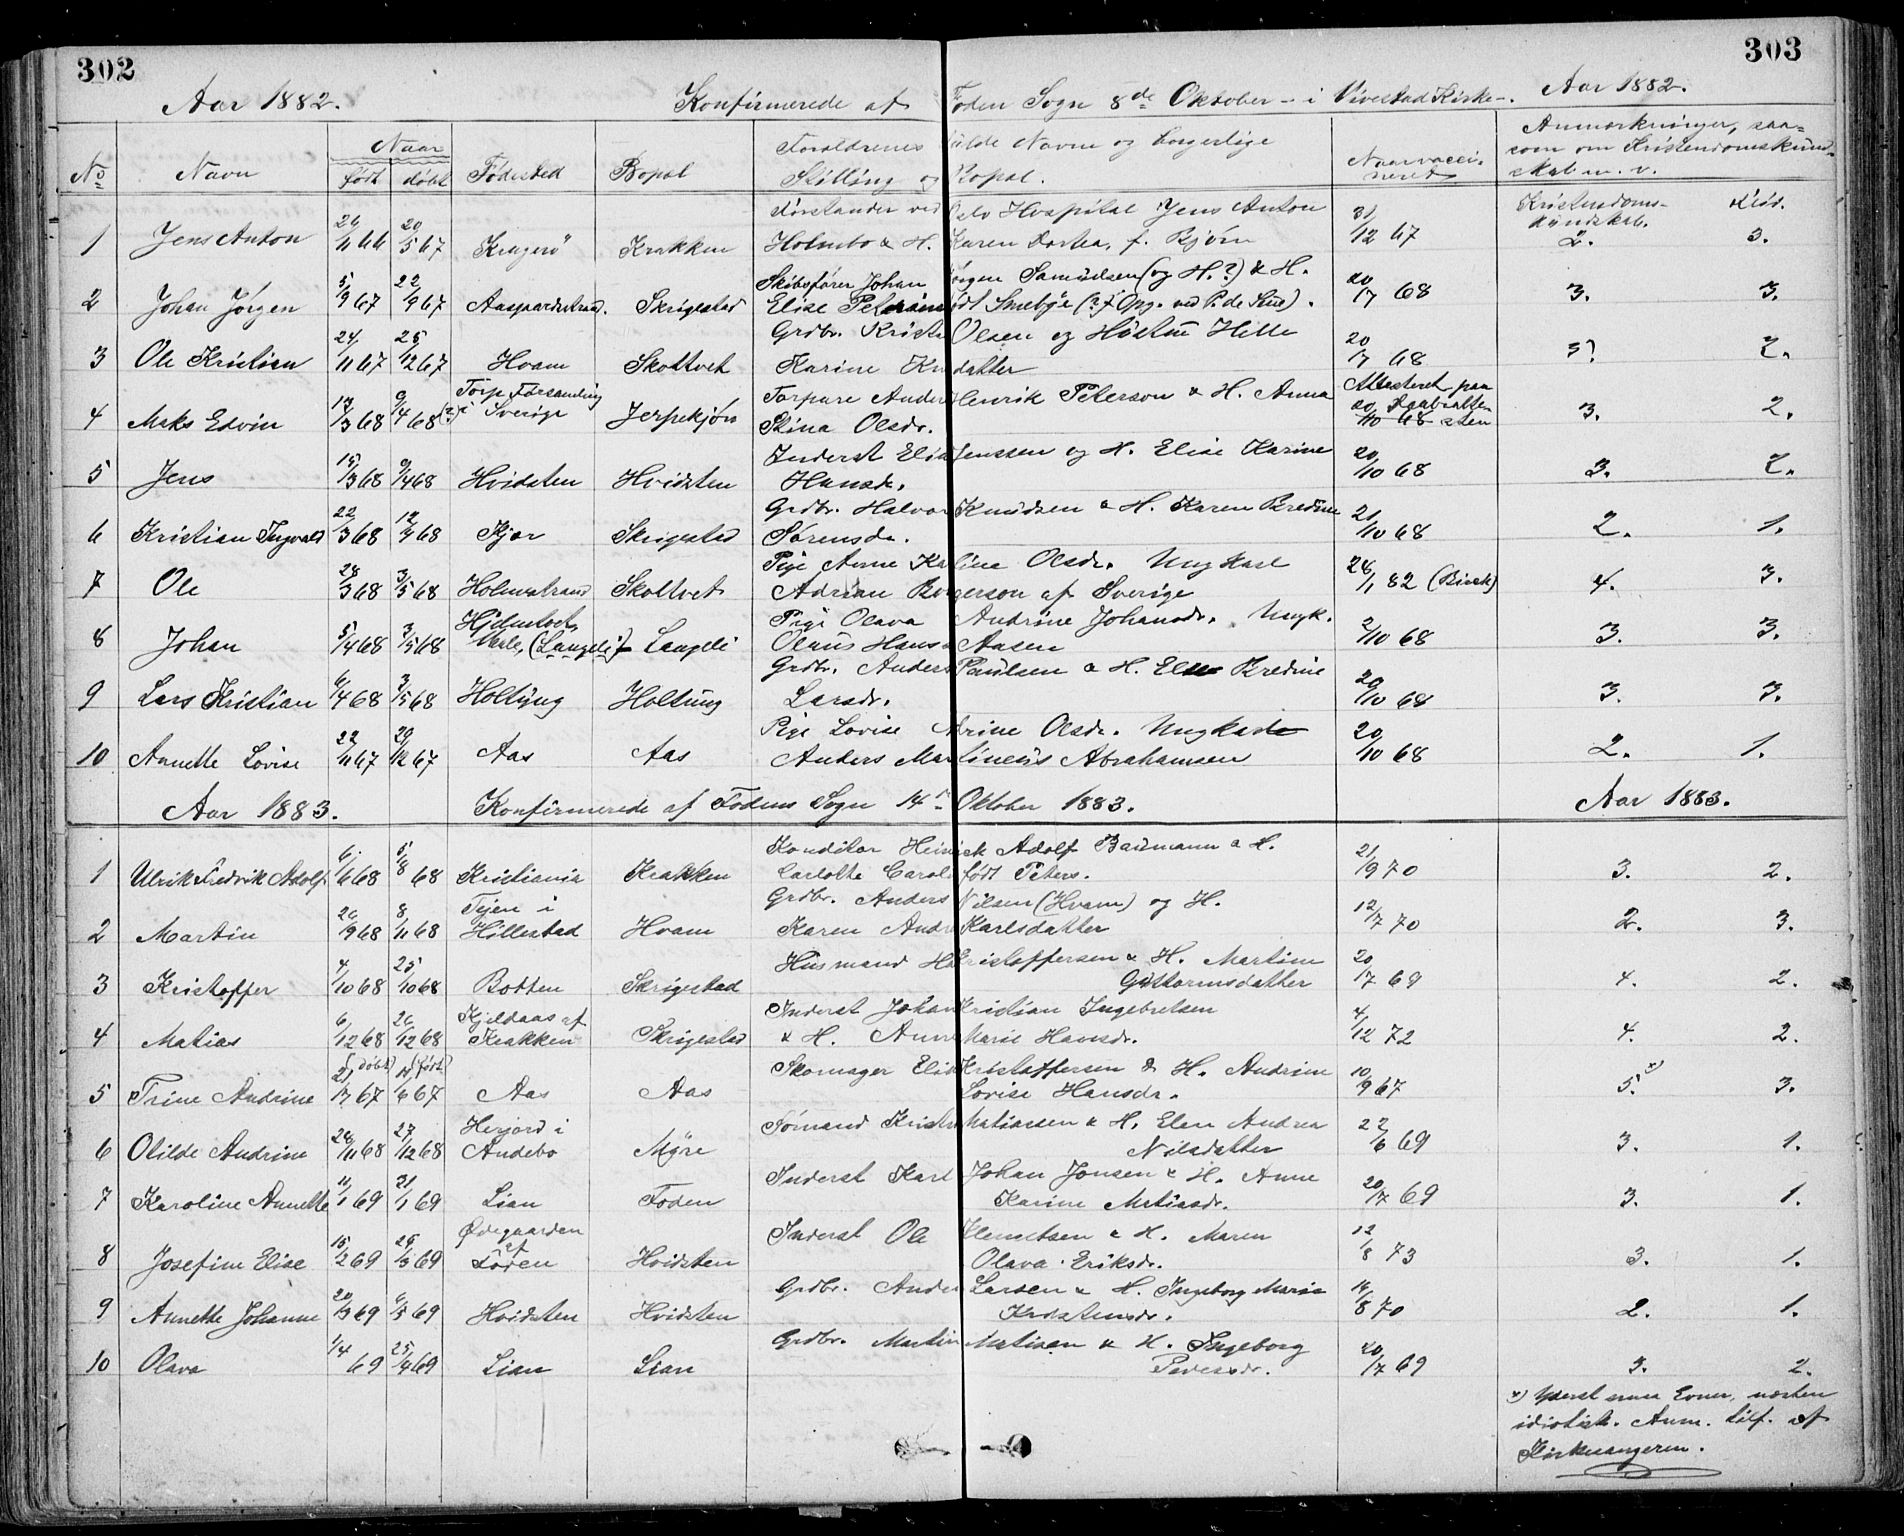 302
303
Aar 1882. Konfirmerede af Foden Sogn 8de Oktober - i Vivestad Kirke -. Aar 1882.
No Navn Naar født døbt Fødested Bopæl Forældrenes fulde Navne og borgerlige Stilling og Bopæl. Naar vaccineret Anmærkninger, saasom om Kristendomskundskab m. v.
Kristendomskundskab. Flid.
1 Jens Anton 11 66 20/5 67 Kragerö Krakken Forstander ved Oslo Hospital Jens Anton
Holmbo & H. Karen Dortea, f. Bjørn 31/12 67 2. 3.
2 Johan Jørgen 5/9 67 22/9 67 Aasgaardstrand Skrigestad Skibsfører Johan Jørgen Samuelsen (og H.?) & H.
Elise født Smebye 20/7 68 3. 3.
3 Ole Kristian 24/11 67 25/12 67 Hvam Skottvet Grdbr. Olsen og Hustru Hille
Karine datter 20/7 68 3. 2.
4 Maks Edvin 17/3 68 9/4 68 (?) Torp Forsamling i Sverige Jerpekjøn Torpare Anders Henrik Peterson & H. Anna
Stina Olsdr. Attesteret paa 20/10 68 3. 2.
5 Jens 15/3 68 9/4 68 Hvidsten Hvidsten Inderst Elias Jenssen og H. Elise Karine
Hansdr. 20/10 68 3. 2.
6 Kristian Ingvald 22/3 68 68 Kjær Skrigestad Grdbr. Halvor Knudsen & H. Karen Bredine
Sørensdr. 21/10 68 2. 1.
7 Ole 28/3 68 3/5 68 Holmestrand Skottvet Pige Anne Karoline Olsdr. Ungkarl
Adrian Borgerson af Sverige 28/1 82 4. 3.
8 Johan 5/4 68 3/5 68 (Langeli) Langeli Pige Olava Andrine Johansdr. Ungk.
Olaus Hansen Aasen 2/10 68 3. 3.
9 Lars Kristian 6/4 68 3/5 68 Holtung Holtung Grdbr. Anders Paulsen & H. Bredine
Larsdr. 20/10 68 3. 3.
10 Annette Lovise 22/11 67 29/12 67 Aas Aas Pige Lovise Olsdr. Ungkarl
Anders Martinius Abrahamsen 20/10 68 2. 1.
Aar 1883. Konfirmerede af Fodens Sogn 14de Oktober 1883. Aar 1883.
1 Ulrik Fredrik Adolf 6/6 68 5/8 68 Kristiania Krakken Konditor Adolf Baumann & H.
Carlotte født Peters. 21/9 70 3. 2.
2 Martin 9 68 8/11 68 i Hillestad Hvam Grdbr. Anders Nilsen (Hvam) og H.
Karen Karlsdatter 12/7 70 2. 3.
3 Kristoffer 4/10 68 25/10 68 Botten Skrigestad Husmand Kristoffersen & H. Martine
Guttormsdatter 20/7 69 4. 2.
4 Matias 6/12 68 26/12 68 Kjeldaas af Krakken Skrigestad Inderst Johan Kristian Ingebretsen
& H. Anne Marie Hansdr. 4/12 72 4. 2.
5 Trine Andrine 21/7 67 (døbt) 6 67 (født) Aas Aas Skomager Elias Kristoffersen & H. Andrine
Lovise Hansdr. 10/9 67 5. x) 3.
6 Otilde Andrine 28/11 68 27/12 68 Herjord i Andebo Myre Sømand Matiassen & H. Elen Andrea
Nilsdatter 22/6 69 3. 1.
7 Karoline Annette 11/1 69 31/1 69 Lian Foden Inderst Karl Johan Jonsen & H. Anne
Karine Matiasdr. 20/7 69 3. 1.
8 Josefine Elise 15/2 69 29/3 69 Ødegaarden af Foden Hvidsten Inderst Ole Klemetsen & H. Maren
Olava Eriksdr. 12/8 73 3. 1.
9 Annette Johanne 20/3 69 6/5 69 Hvidsten Hvidsten Grdbr. Anders Larsen & H. Ingeborg Marie
Kristensdr. 16/8 70 2. 1.
10 Olava 1/4 69 25/4 69 Lian Lian Grdbr. Martin Matisen & H. Ingeborg
20/7 69 3. 2.
x) Yderst smaa Evner, næsten
idiotisk. Anm. tilf. af
Kirkesangeren.